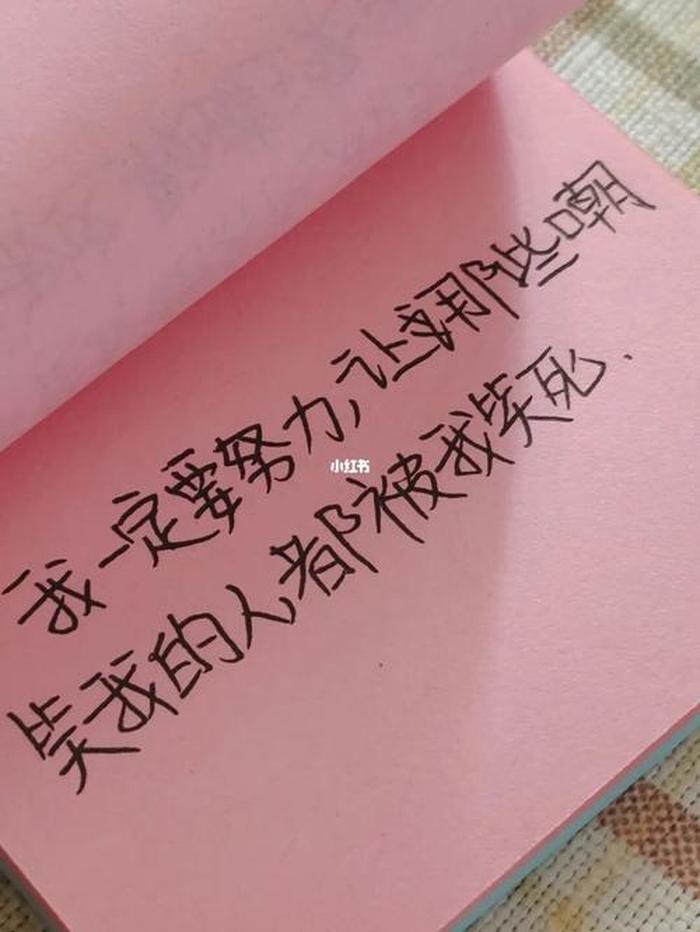 我一定要努力,让那些嘲
笑我的人都被我笑死.
小红书